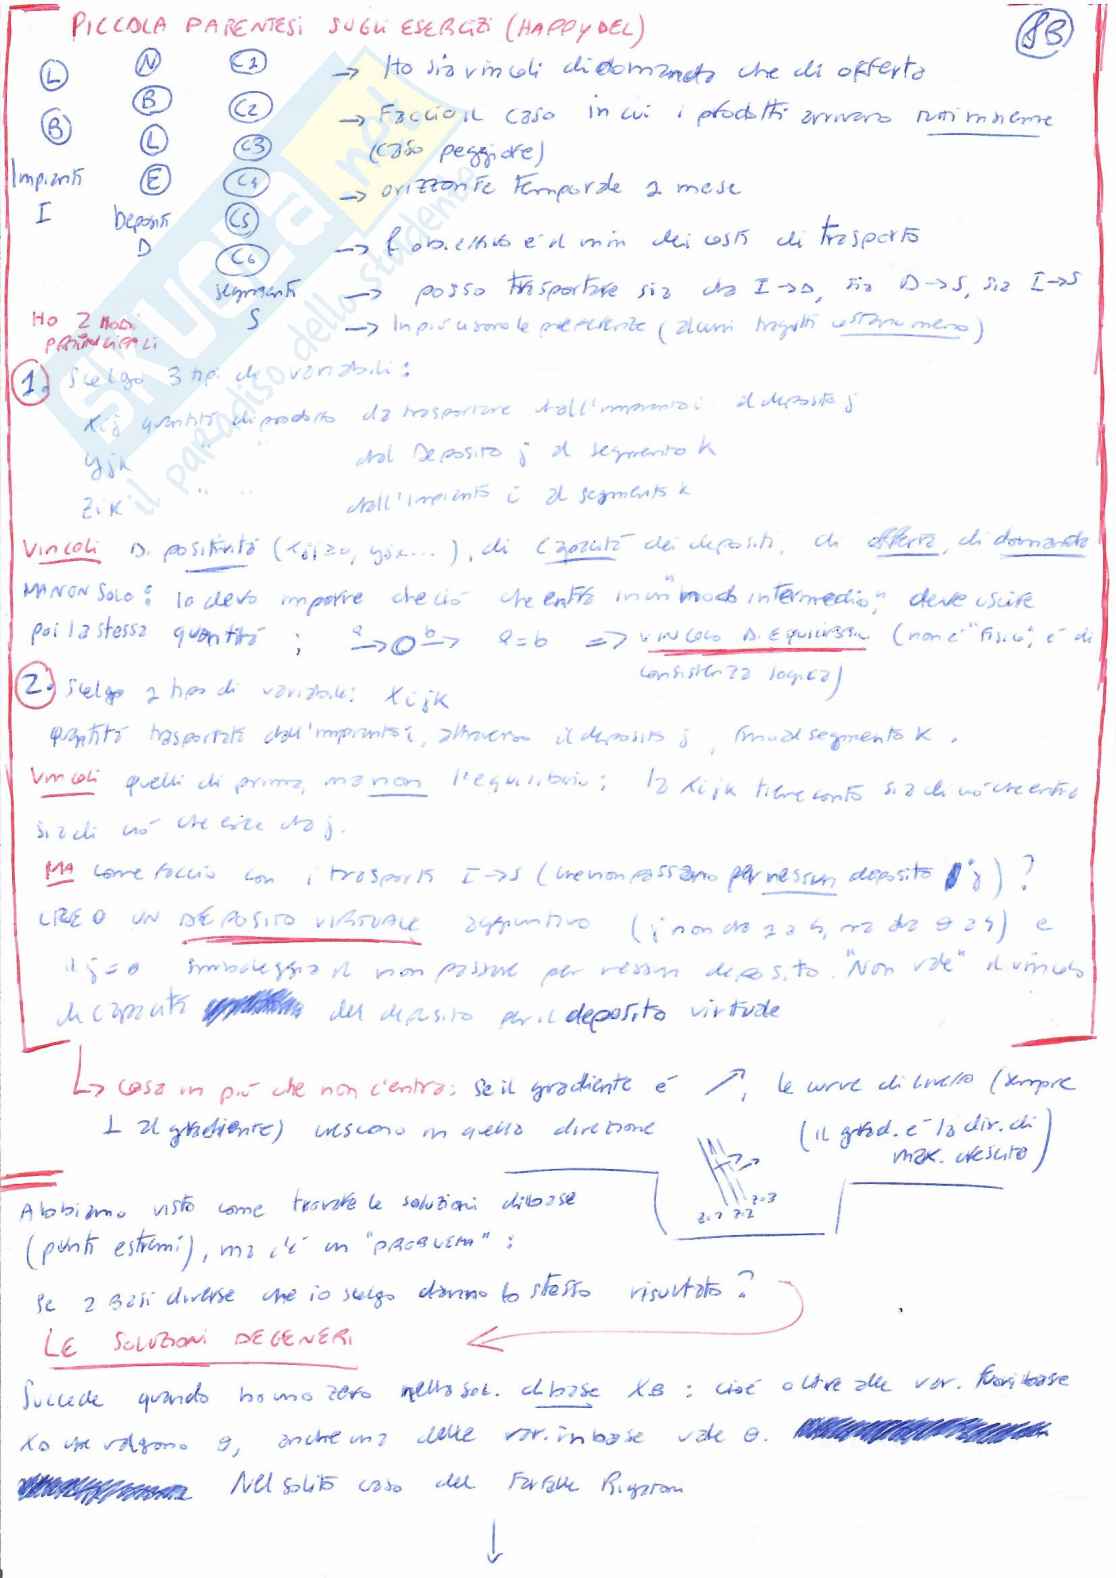 PICCOLA PARENTESI SUGLI ESERCIZI (HAPPYDEL)
8B
L N C1 → Ho sia vincoli di domanda che di offerta
B B C2 → Faccio il caso in cui i prodotti arrivano tutti insieme
L C3 (caso peggiore)
Impianti E C4 → orizzonte temporale 1 mese
I Depositi C5
D C6 → f. obiettivo è il min dei costi di trasporto
segmenti → posso trasportare sia da I→D, sia D→S, sia I→S
S → In più ci sono le preferenze (alcuni tragitti costano meno)
HO 2 MODI PRINCIPALI
1. Scelgo 3 tipi di variabili:
Xij quantità di prodotto da trasportare dall'impianto i al deposito j
yjk " " dal Deposito j al segmento k
Zik " " dall'impianto i al segmento k
Vincoli Di positività (xij≥0, yjk...), di capacità dei depositi, di offerta, di domanda
MA NON SOLO: Io devo imporre che ciò che entra in un "nodo intermedio", deve uscire
poi la stessa quantità; a→O b→ a=b => VINCOLO DI EQUILIBRIO (non è "fisico", è di
consistenza logica)
2. Scelgo 1 tipo di variabile: Xijk
quantità trasportata dall'impianto i, attraverso il deposito j, fino al segmento k.
Vincoli quelli di prima, ma non l'equilibrio: la Xijk tiene conto sia di ciò che entra
sia di ciò che esce da j.
MA come faccio con i trasporti I→S (che non passano per nessun deposito j)?
CREO UN DEPOSITO VIRTUALE aggiuntivo (j non da 1 a 4, ma da 0 a 4) e
il j=0 simboleggia il non passare per nessun deposito. "Non vale" il vincolo
di capacità del deposito per il deposito virtuale
↳ Cosa in più che non c'entra: Se il gradiente è ↗, le curve di livello (sempre
⊥ al gradiente) crescono in quella direzione
(il grad. è la dir. di
max. crescita)
z=1 z=2 z=3
Abbiamo visto come trovare le soluzioni di base
(punti estremi), ma c'è un "PROBLEMA":
Se 2 Basi diverse che io scelgo danno lo stesso risultato?
LE SOLUZIONI DEGENERI
Succede quando ho uno zero nella sol. di base XB: cioè oltre alle var. fuori base
Xo che valgono 0, anche una delle var. in base vale 0.
Nel solito caso del Farfalle Rigatoni
↓